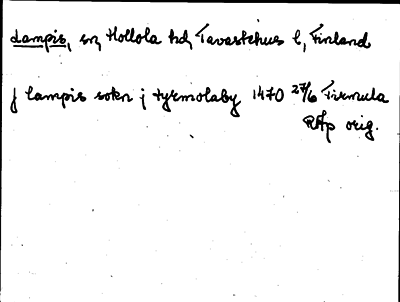 Lampis, sn, Hollola hd, Tavastehus l, Finland
j lampis sokn j tyrmolaby 1470 27/6 Firmula
RAp orig.